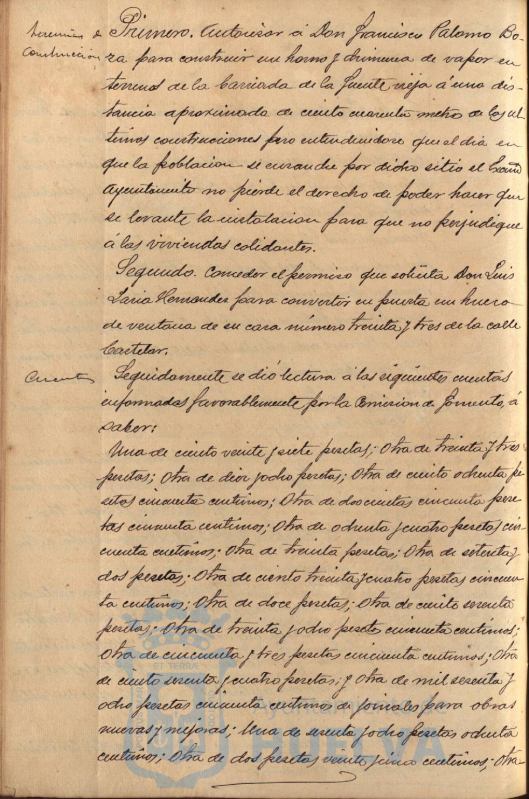 Licencias de Primero. Autorizar á Don Francisco Palomo Bo-
Construccion za para construir un horno y chimenea de vapor en
terrenos de la barriada de la Fuente vieja á una dis-
tancia aproximada de ciento cuarenta metros de las ul-
timas construcciones pero entendiendose que el dia en
que la poblacion se ensanche por dicho sitio el Excmo
Ayuntamiento no pierde el derecho de poder hacer que
se levante la instalacion para que no perjudique
á las viviendas colidantes.
Segundo. Conceder el permiso que solicita Don Luis
Hernandez para convertir en puerta un hueco
de ventana de su casa número treinta y tres de la calle
Castelar.
Cuentas Seguidamente se dió lectura á las siguientes cuentas
informadas favorablemente por la Comision de Fomento, á
saber:
Una de ciento veinte y siete pesetas; Otra de treinta y tres
pesetas; Otra de diez y ocho pesetas; Otra de ciento ochenta pe-
setas cincuenta centimos; Otra de doscientas cincuenta pese-
tas cincuenta centimos; Otra de ochenta y cuatro pesetas cin-
cuenta centimos; Otra de treinta pesetas; Otra de setenta y
dos pesetas; Otra de ciento treinta y cuatro pesetas cincuen-
ta centimos; Otra de doce pesetas; Otra de ciento sesenta
pesetas; Otra de treinta y ocho pesetas cincuenta centimos;
Otra de cincuenta y tres pesetas cincuenta centimos; Otra
de ciento sesenta y cuatro pesetas; y Otra de mil sesenta y
ocho pesetas cincuenta centimos de jornales para obras
nuevas y mejoras; Una de sesenta y ocho pesetas ochenta
centimos; Otra de dos pesetas veinte y cinco centimos; Otra
ET TERRAE
HUELVA